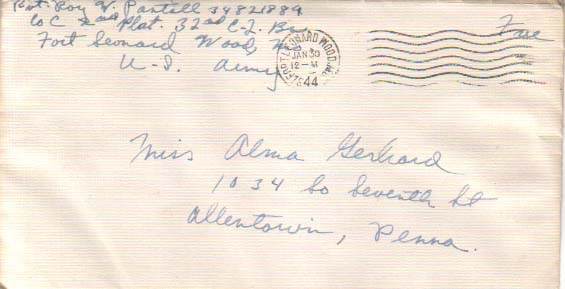 Pvt. Roy W. Pantell 34821889
Co C 2nd Plat. 32nd C-I. Bn
Fort Leonard Wood, Mo
U-S. Army
FORT LEONARD WOOD, MO.
JAN 30
12-M
1944
Free
Miss Alma Gerhard
1034 So Seventh St
Allentown, Penna.